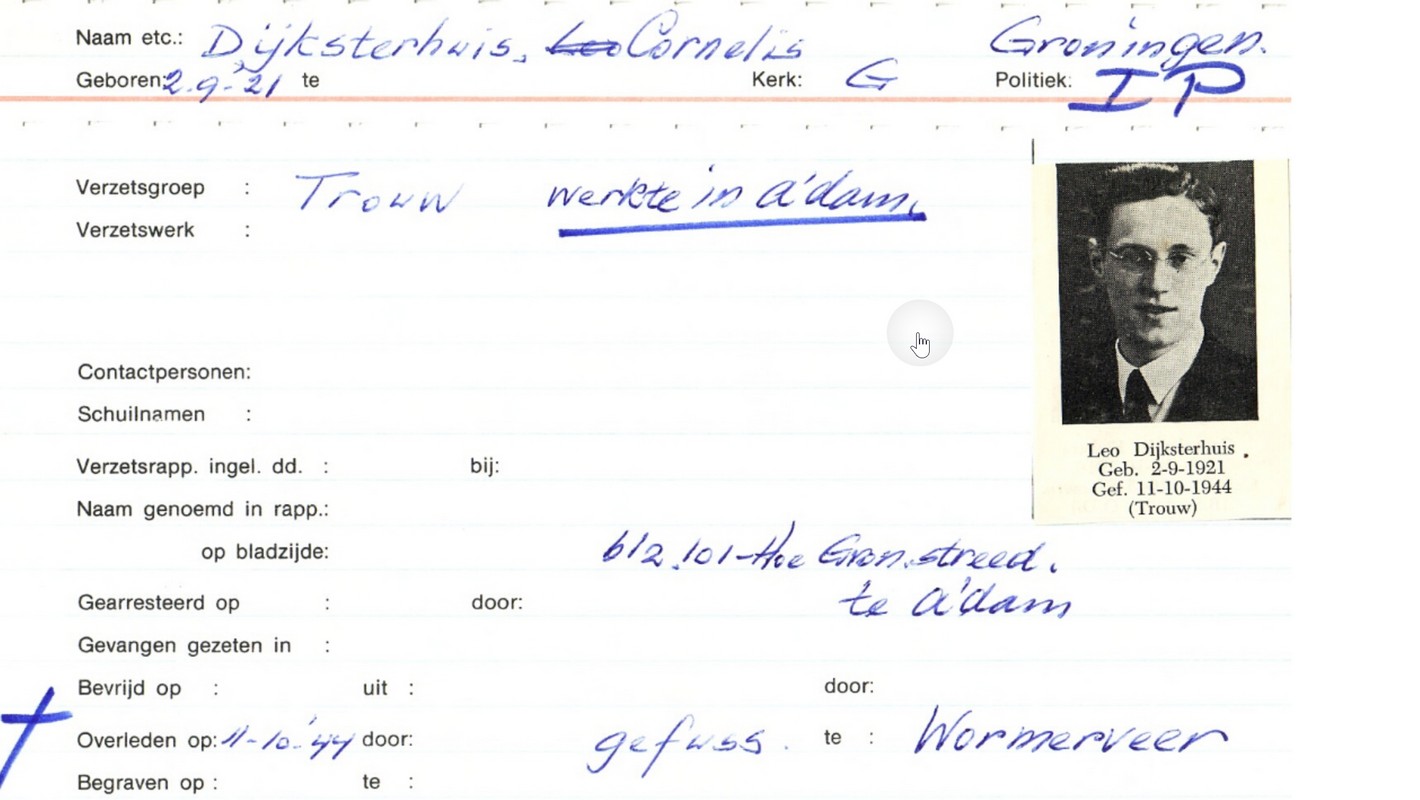 Naam etc.: Dijksterhuis, Leo Cornelis Groningen.
Geboren: 2.9.'21 te Kerk: G Politiek: IP
Verzetsgroep : Trouw werkte in A'dam.
Verzetswerk :
Contactpersonen:
Schuilnamen :
Verzetsrapp. ingel. dd. : bij:
Naam genoemd in rapp.:
op bladzijde: blz. 101 - Hoe Gron. streed.
te A'dam
Gearresteerd op : door:
Gevangen gezeten in :
Bevrijd op : uit : door:
Overleden op: 11-10-'44 door: gefuss. te : Wormerveer
Begraven op : te :
Leo Dijksterhuis.
Geb. 2-9-1921
Gef. 11-10-1944
(Trouw)